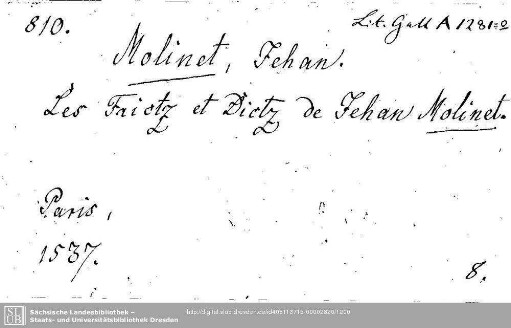 810.
Lit. Gall A 1281=2
Molinet, Jehan.
Les Faictz et Dictz de Jehan Molinet.
Paris,
1537.
8.
SLUB
Sächsische Landesbibliothek –
Staats- und Universitätsbibliothek Dresden